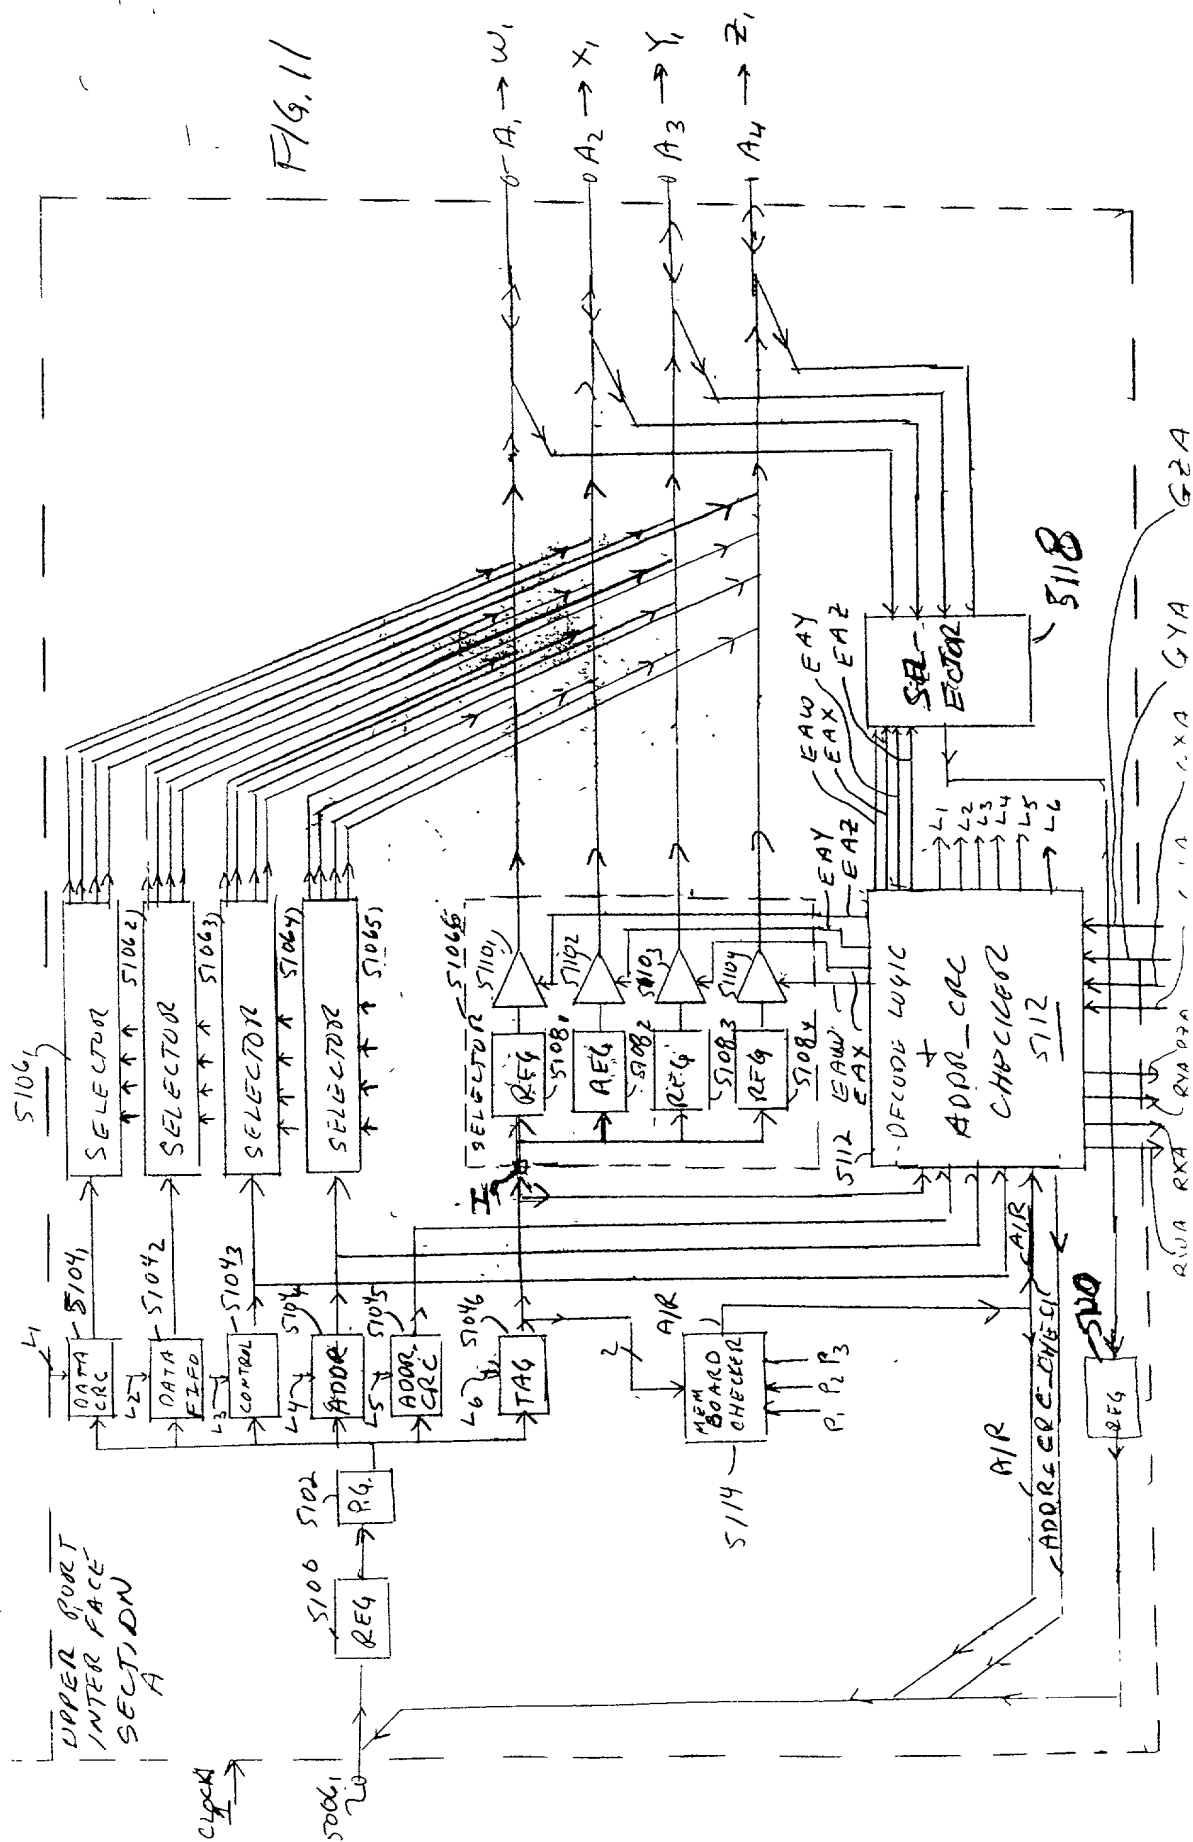 FIG. 11
UPPER PORT
INTER FACE
SECTION
A
CLOCK
5006₁
5100
REG
5102
P.G.
L1
DATA
CRC
5104₁
L2
DATA
FIFO
5104₂
L3
CONTROL
5104₃
L4
ADDR
5104₄
L5
ADDR
CRC
5104₅
L6
TAG
5104₆
5106₁
SELECTOR
5106₂
SELECTOR
5106₃
SELECTOR
5106₄
SELECTOR
5106₅
SELECTOR
5106₆
I
REG
5108₁
REG
5108₂
REG
5108₃
REG
5108₄
5110₁
5110₂
5110₃
5110₄
A₁ → W₁
A₂ → X₁
A₃ → Y₁
A₄ → Z₁
2
A/R
MEM
BOARD
CHECKER
5114
P₁ P₂ P₃
EAW
EAX
EAY
EAZ
5112
DECODE LOGIC
+
ADDR_CRC
CHECKER
5112
EAW EAY
EAX EAZ
L1
L2
L3
L4
L5
L6
SEL-
ECTOR
5118
A/R
A/R
ADDR_CRC_CHECK
REG
RWA RXA RYA RZA
GYA GZA